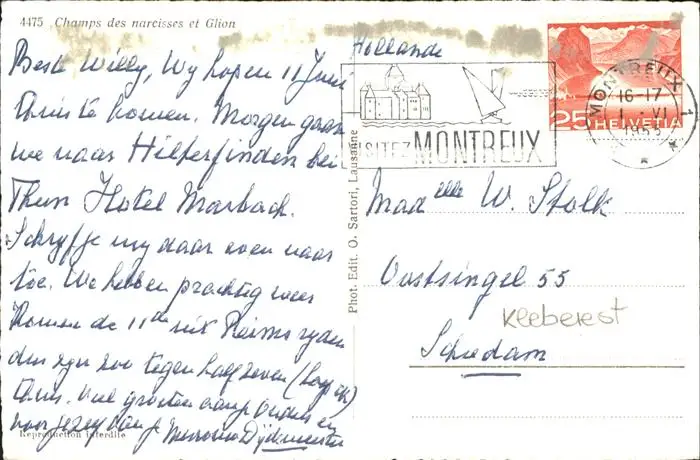 4475 Champs des narcisses et Glion
Beste Willy, Wy hopen 11 Juni
thuis te komen. Morgen gaan
we naar Hilterfinden bei
Thun Hotel Marbach.
Schryf je my daar even naar
toe. We hebben prachtig weer
Komen de 11de uit Reims ryden
dus zyn zoo tegen half zeven
thuis. Veel groeten aan je Ouders en
voor jezelf van je
Reproduction interdite
Phot. Edit. O. Sartori, Lausanne
Hollande
VISITEZ MONTREUX
MONTREUX 1
16-17
1. VI
1953
25 HELVETIA
Madelle W. Stolk
Oostsingel 55
Kleberest
Schiedam